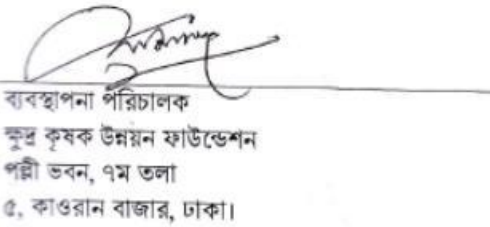 ব্যবস্থাপনা পরিচালক
ক্ষুদ্র কৃষক উন্নয়ন ফাউন্ডেশন
পল্লী ভবন, ৭ম তলা
৫, কাওরান বাজার, ঢাকা।